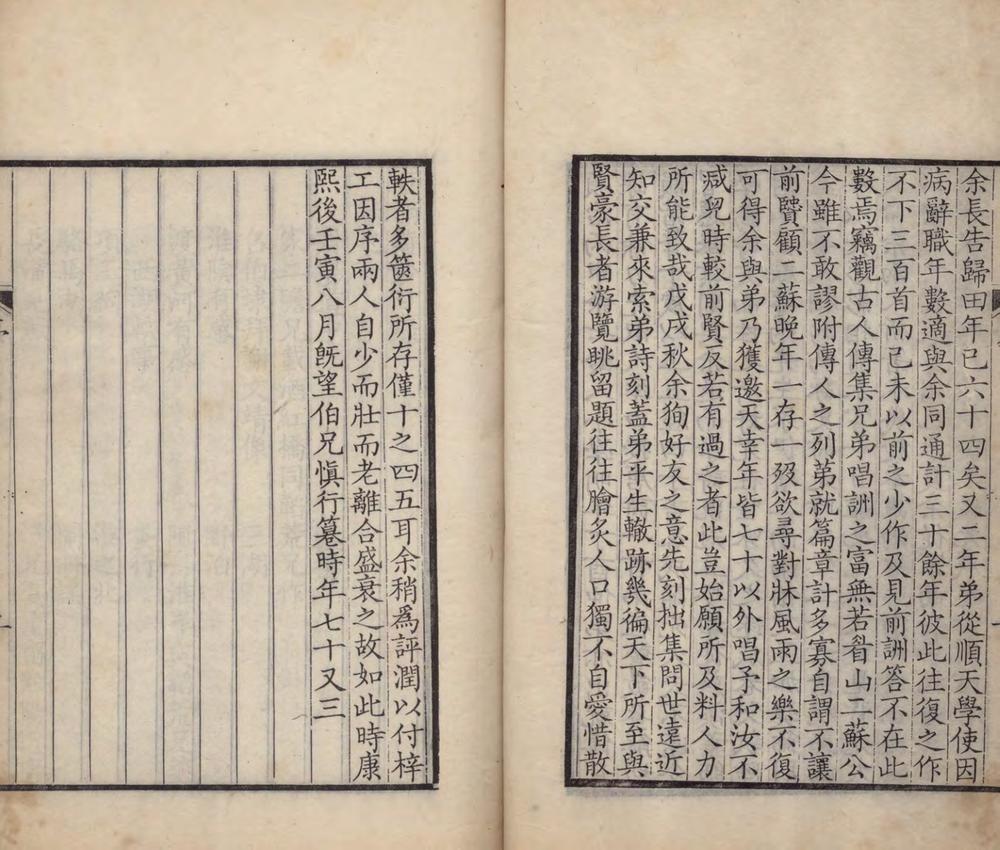 余長告歸田年已六十四矣又二年弟從順天學使因
病辭職年數適與余同通計三十餘年彼此往復之作
不下三百首而己未以前之少作及見前詶答不在此
數焉竊觀古人傳集兄弟唱詶之富無若眉山二蘇公
今雖不敢謬附傳人之列弟就篇章計多寡自謂不讓
前賢顧二蘇晚年一存一歿欲尋對牀風雨之樂不復
可得余與弟乃獲邀天幸年皆七十以外唱予和汝不
减兒時較前賢反若有過之者此豈始願所及料人力
所能致哉戊戌秋余狥好友之意先刻拙集問世遠近
知交兼來索弟詩刻蓋弟平生轍跡幾徧天下所至與
賢豪長者游覽眺留題往往膾炙人口獨不自愛惜散
軼者多篋衍所存僅十之四五耳余稍爲評潤以付梓
工因序兩人自少而壯而老離合盛衰之故如此時康
熙後壬寅八月旣望伯兄愼行篹時年七十又三